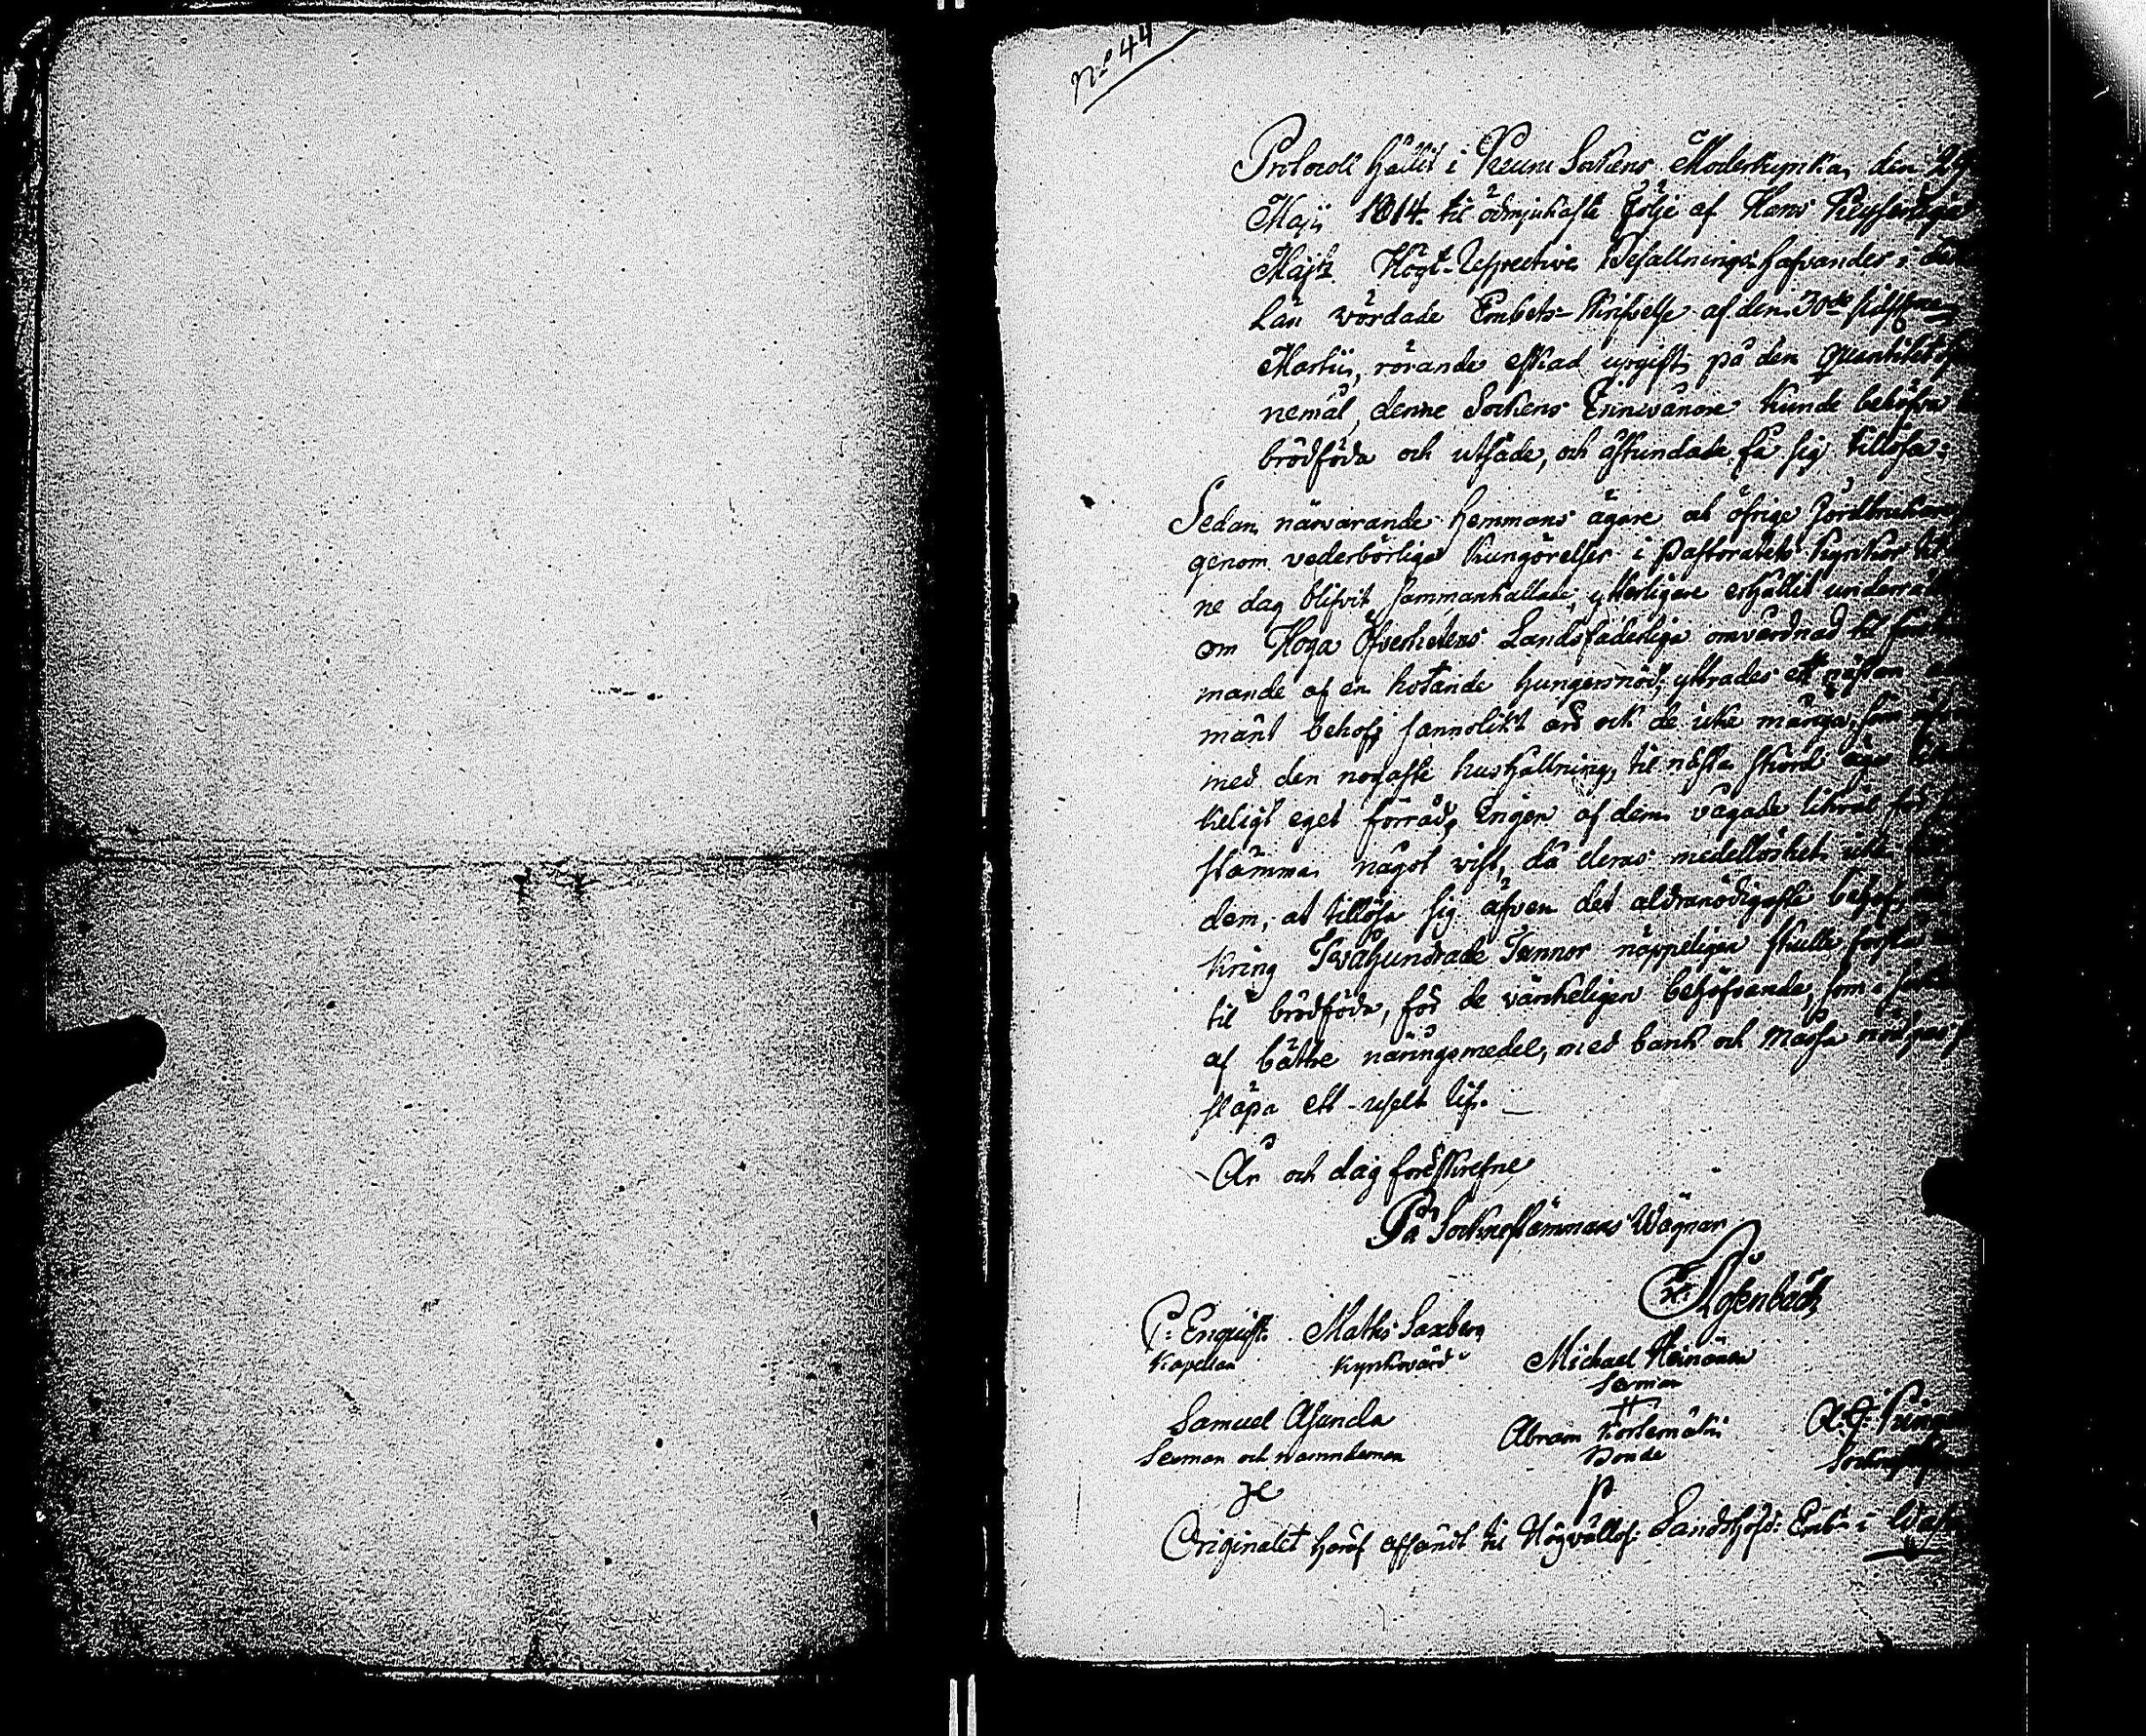 No 44
Protocoll hållit i Keuru Sockens Moderkyrka, den 29
Maji 1814 til ödmjukaste följe af Hans Keyserliga
Majts Högt-Respective Befallningshafvandes i
Län vördade Embets-Skrifvelse af den 30de sistl.
Martii, rörande äskad upgift, på den Quantitet
nemål, denne Sockens Innevånare kunde behöfva
brödföda och utsäde, och åstundade få sig tillösa:
Sedan närvarande Hemmans ägare och öfrige Jordbrukare
genom vederbörliga Kungörelser i Pastoratets Kyrkor til
ne dag blifvit sammankallade, ytterligare erhållit underrät
om Höga Öfverhetens Landsfaderliga omvårdnad til
mande af en hotande hungersnöd; yttrades ett nästan
mänt behof; sannolikt äro ock de icke många, som
med den nogaste hushållning, til nästa skörd äga
keligt eget förråd. Ingen af dem vågade likväl
stämma något visst, då deras medellöshet icke
dem, at tillösa sig äfven det aldranödigaste behof,
kring Tvåhundrade Tunnor näppeligen skulle förslå
til brödföda, för de värkeligen behöfvande, som i
af bättre näringsmedel, med bark och måssa nödgas
släpa ett uselt lif. —
År och dag förskrefne
På Sockneständmans Wägnar
P: Enquist Matts Saxberg
Kapellan Kyrkovärd
Michael Heinonen
Sexman
Samuel Asunda
Sexman och Nämndeman
Abram Kortemäki
Bonde
Originalet häraf afsändt til Högvällof: Landshöfd: Emb: i Wasa